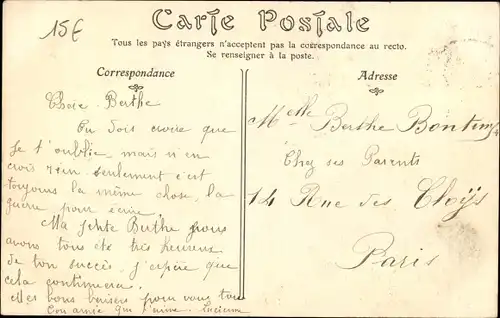 15€
Carte Postale
Tous les pays étrangers n'acceptent pas la correspondance au recto.
Se renseigner à la poste.
Correspondance
Adresse
Chère Berthe
Tu dois croire que
je t'oublie, mais n'en
crois rien seulement c'est
toujours la même chose, la
guerre pour écrire.
Ma petite Berthe nous
avons tous été très heureux
de ton succès, j'espère que
cela continuera.
Mes bons baisers pour vous tous
Ton amie qui t'aime. Lucienne
Melle Berthe
Chez ses Parents
14 Rue des Cloÿs
Paris